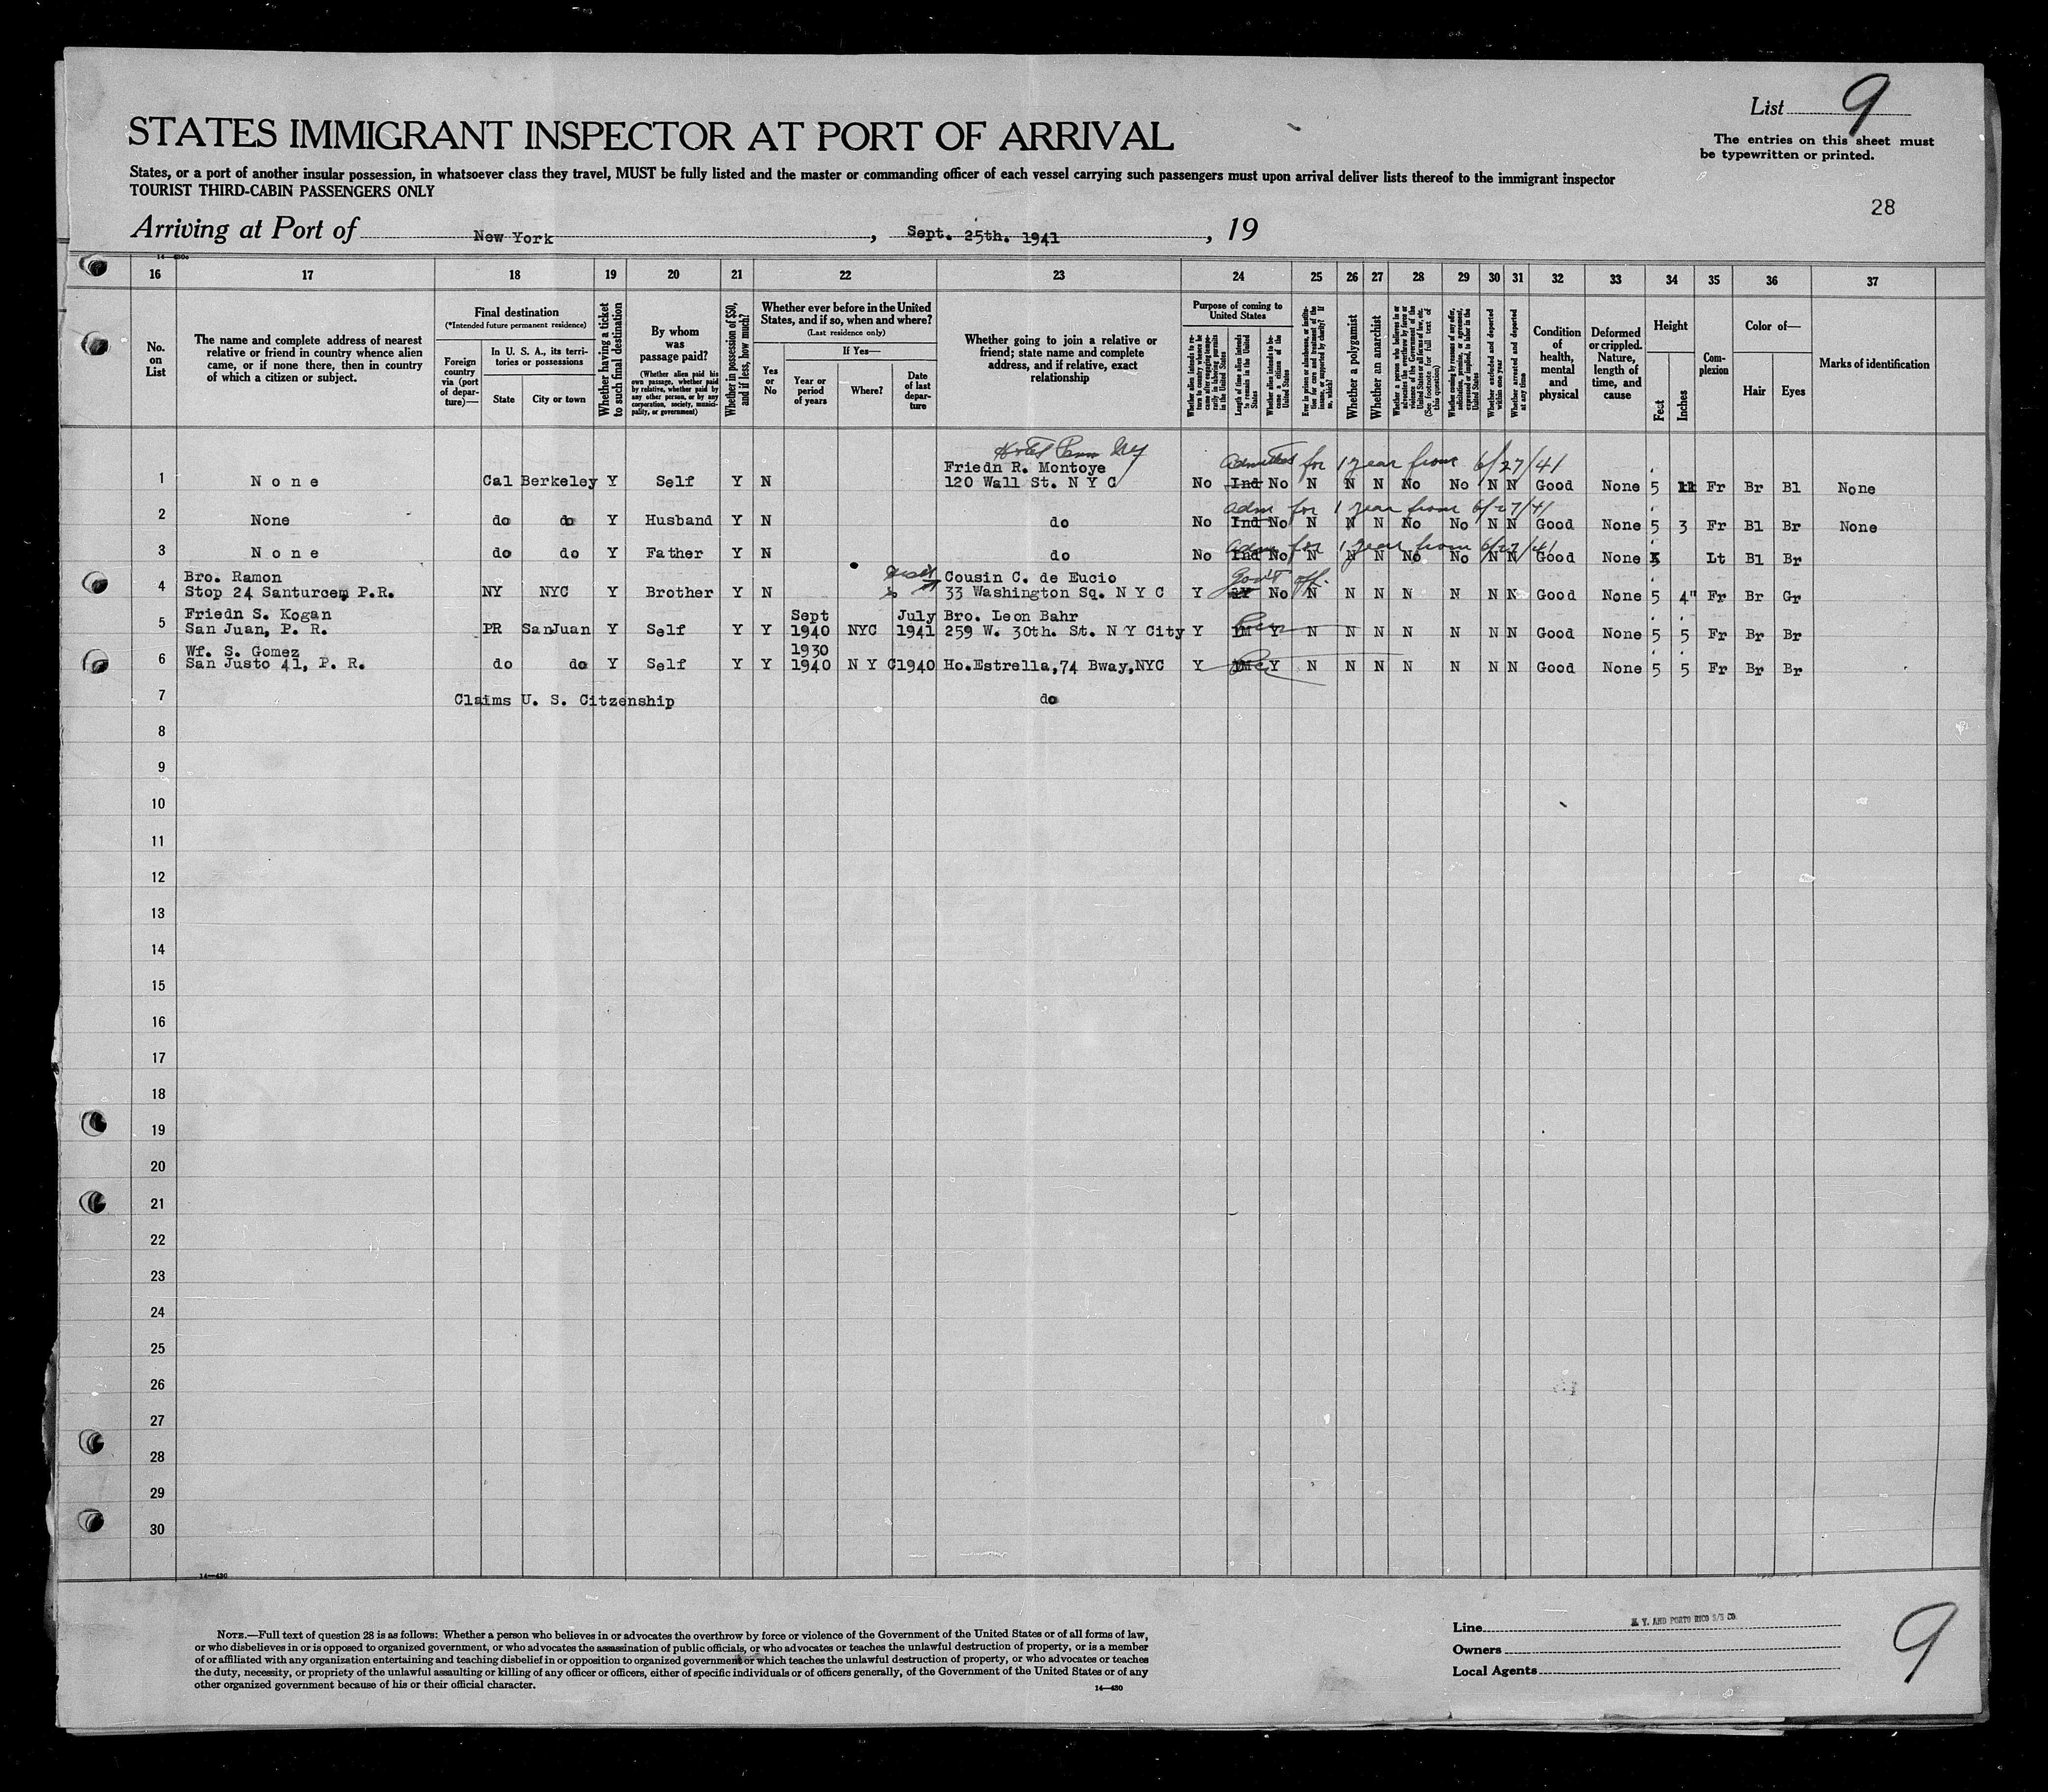 List 9
STATES IMMIGRANT INSPECTOR AT PORT OF ARRIVAL
The entries on this sheet must
be typewritten or printed.
States, or a port of another insular possession, in whatsoever class they travel, MUST be fully listed and the master or commanding officer of each vessel carrying such passengers must upon arrival deliver lists thereof to the immigrant inspector
TOURIST THIRD-CABIN PASSENGERS ONLY
28
Arriving at Port of New York, Sept. 25th. 1941, 19
16 17 18 19 20 21 22 23 24 25 26 27 28 29 30 31 32 33 34 35 36 37
No. on List
The name and complete address of nearest relative or friend in country whence alien came, or if none there, then in country of which a citizen or subject.
Final destination
(*Intended future permanent residence)
Foreign country via (port of departure)—
In U. S. A., its territories or possessions
State
City or town
Whether having a ticket to such final destination
By whom was passage paid?
(Whether alien paid his own passage, whether paid by relative, whether paid by any other person, or by any corporation, society, municipality, or government)
Whether in possession of $50, and if less, how much?
Whether ever before in the United States, and if so, when and where?
(Last residence only)
Yes or No
If Yes—
Year or period of years
Where?
Date of last departure
Whether going to join a relative or friend; state name and complete address, and if relative, exact relationship
Purpose of coming to United States
Whether alien intends to return to country whence he came after engaging temporarily in laboring pursuits in the United States
Length of time alien intends to remain in the United States
Whether alien intends to become a citizen of the United States
Whether a polygamist
Whether an anarchist
Whether excluded and deported within one year
Whether arrested and deported at any time
Condition of health, mental and physical
Deformed or crippled. Nature, length of time, and cause
Height
Feet
Inches
Complexion
Color of—
Hair
Eyes
Marks of identification
Hotel Penn NY
Friedn R. Montoye admitted for 1 year from 6/27/41
1 None Cal Berkeley Y Self Y N 120 Wall St. N Y C No Ind No N N N No No N N Good None 5 11 Fr Br Bl None
adm for 1 year from 6/27/41
2 None do do Y Husband Y N do No Ind No N N N No No N N Good None 5 3 Fr Bl Br None
adm for 1 year from 6/27/41
3 None do do Y Father Y N do No Ind No N N N No No N N Good None 5 Lt Bl Br
Bro. Ramon Cousin C. de Eucio Gov't off.
4 Stop 24 Santurcem P.R. NY NYC Y Brother Y N 33 Washington Sq. N Y C Y No N N N N N N N Good None 5 4" Fr Br Gr
Friedn S. Kogan Sept July Bro. Leon Bahr
5 San Juan, P. R. PR SanJuan Y Self Y Y 1940 NYC 1941 259 W. 30th. St. N Y City Y 1M Y N N N N N N N Good None 5 5 Fr Br Br
Wf. S. Gomez 1930
6 San Justo 41, P. R. do do Y Self Y Y 1940 N Y C 1940 Ho.Estrella,74 Bway,NYC Y Y N N N N N N N Good None 5 5 Fr Br Br
7 Claims U. S. Citzenship do
8
9
10
11
12
13
14
15
16
17
18
19
20
21
22
23
24
25
26
27
28
29
30
14—430
NOTE.—Full text of question 28 is as follows: Whether a person who believes in or advocates the overthrow by force or violence of the Government of the United States or of all forms of law,
or who disbelieves in or is opposed to organized government, or who advocates the assassination of public officials, or who advocates or teaches the unlawful destruction of property, or is a member
of or affiliated with any organization entertaining and teaching disbelief in or opposition to organized government or which teaches the unlawful destruction of property, or who advocates or teaches
the duty, necessity, or propriety of the unlawful assaulting or killing of any officer or officers, either of specific individuals or of officers generally, of the Government of the United States or of any
other organized government because of his or their official character.
14—430
Line N. Y. AND PORTO RICO S/S CO.
Owners
Local Agents
9